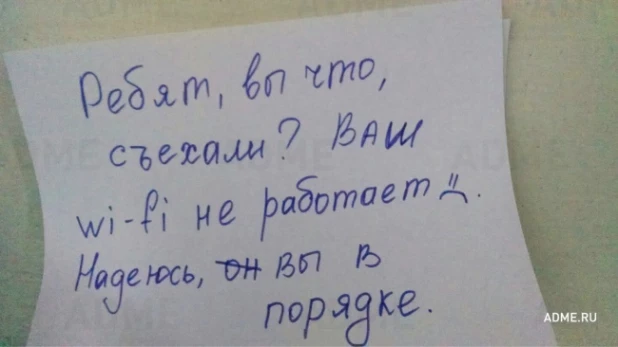 Ребят, вы что,
съехали? ВАШ
wi-fi не работает =(.
Надеюсь, он вы в
порядке.
ADME.RU